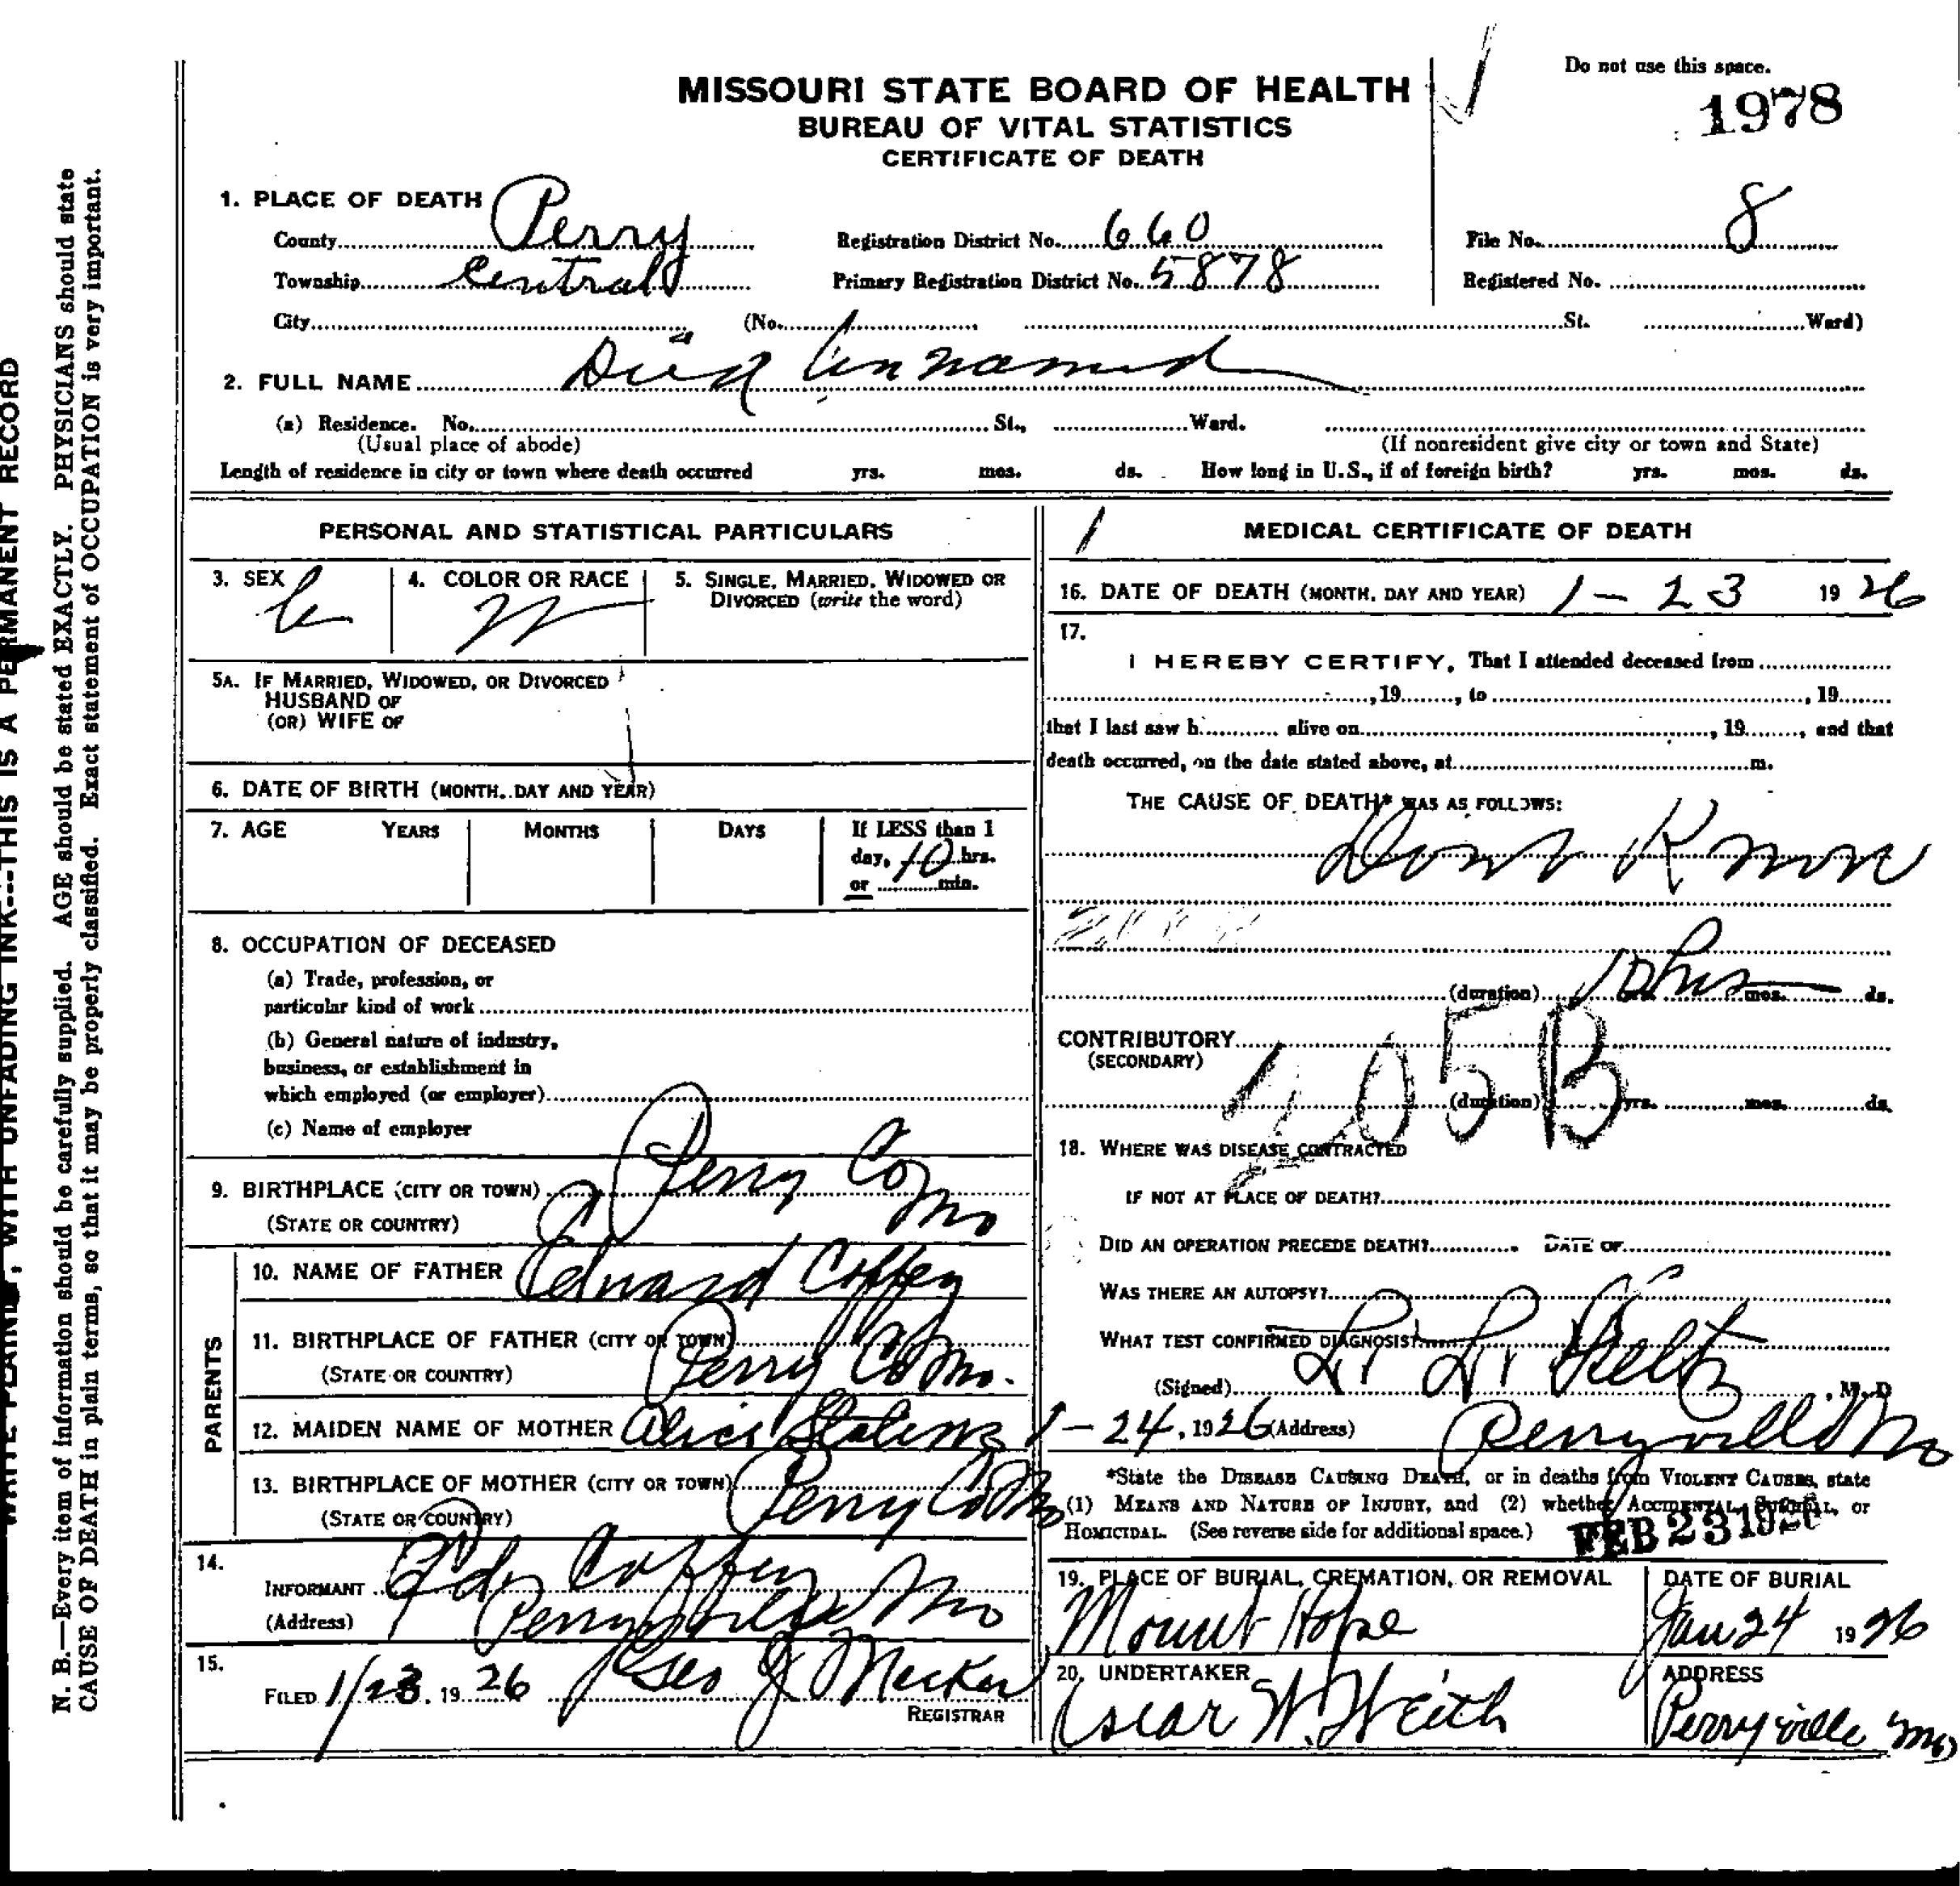 Do not use this space.
1978
MISSOURI STATE BOARD OF HEALTH
BUREAU OF VITAL STATISTICS
CERTIFICATE OF DEATH
1. PLACE OF DEATH
County Perry Registration District No. 660 File No. 8
Township Central Primary Registration District No. 5878 Registered No.
City (No. St. Ward)
2. FULL NAME Died Unnamed
(a) Residence. No. St., Ward.
(Usual place of abode) (If nonresident give city or town and State)
Length of residence in city or town where death occurred yrs. mos. ds. How long in U.S., if of foreign birth? yrs. mos. ds.
PERSONAL AND STATISTICAL PARTICULARS
3. SEX 4. COLOR OR RACE W 5. SINGLE, MARRIED, WIDOWED OR
DIVORCED (write the word)
5A. IF MARRIED, WIDOWED, OR DIVORCED
HUSBAND OF
(OR) WIFE OF
6. DATE OF BIRTH (MONTH, DAY AND YEAR)
7. AGE YEARS MONTHS DAYS If LESS than 1
day, 10 hrs.
or min.
8. OCCUPATION OF DECEASED
(a) Trade, profession, or
particular kind of work
(b) General nature of industry,
business, or establishment in
which employed (or employer)
(c) Name of employer
9. BIRTHPLACE (CITY OR TOWN) Perry Co
(STATE OR COUNTRY) Mo
PARENTS
10. NAME OF FATHER Edward Coffey
11. BIRTHPLACE OF FATHER (CITY OR TOWN) Perry Co Mo.
(STATE OR COUNTRY)
12. MAIDEN NAME OF MOTHER Alice
13. BIRTHPLACE OF MOTHER (CITY OR TOWN) Perry Co Mo
(STATE OR COUNTRY)
14.
INFORMANT Ed Coffey
(Address) Perryville Mo
15.
FILED 1/23, 1926 Geo J Mecker
REGISTRAR
1 MEDICAL CERTIFICATE OF DEATH
16. DATE OF DEATH (MONTH, DAY AND YEAR) 1-23 1926
17.
I HEREBY CERTIFY, That I attended deceased from
, 19 , to , 19
that I last saw h alive on , 19 , and that
death occurred, on the date stated above, at m.
THE CAUSE OF DEATH* WAS AS FOLLOWS:
Dont Know
(duration) 10 hrs yrs. mos. ds.
CONTRIBUTORY
(SECONDARY)
205B
(duration) yrs. mos. ds.
18. WHERE WAS DISEASE CONTRACTED
IF NOT AT PLACE OF DEATH?
DID AN OPERATION PRECEDE DEATH? DATE OF
WAS THERE AN AUTOPSY?
WHAT TEST CONFIRMED DIAGNOSIS?
(Signed) , M.D
1-24, 1926 (Address) Perryville Mo
*State the DISEASE CAUSING DEATH, or in deaths from VIOLENT CAUSES, state
(1) MEANS AND NATURE OF INJURY, and (2) whether ACCIDENTAL, SUICIDAL, or
HOMICIDAL. (See reverse side for additional space.)
FEB 23 1926
19. PLACE OF BURIAL, CREMATION, OR REMOVAL DATE OF BURIAL
Mount Hope Jan 24 1926
20. UNDERTAKER ADDRESS
Oscar W. Weith Perryville Mo
N. B.—Every item of information should be carefully supplied. AGE should be stated EXACTLY. PHYSICIANS should state
CAUSE OF DEATH in plain terms, so that it may be properly classified. Exact statement of OCCUPATION is very important.
WRITE PLAINLY, WITH UNFADING INK---THIS IS A PERMANENT RECORD